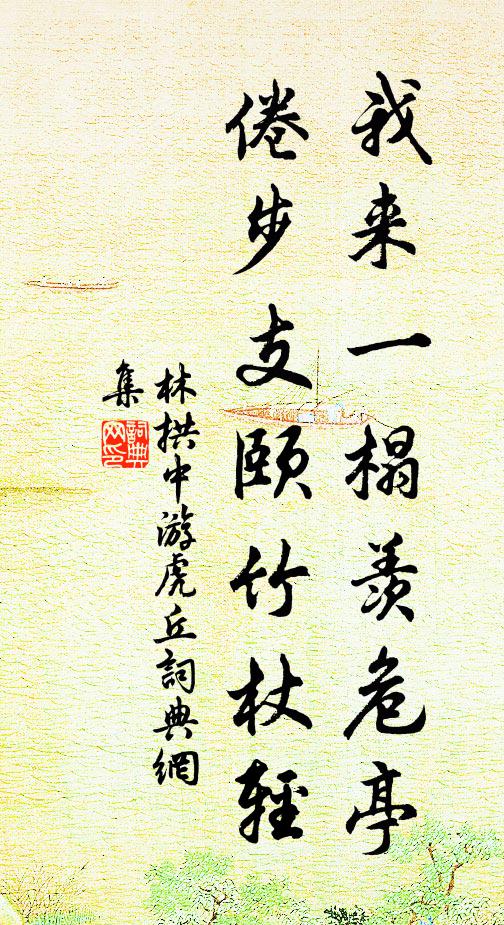 我来一榻羡危亭
倦步支颐竹杖轻
林拱中游虎丘詞典網
集
詞典网印